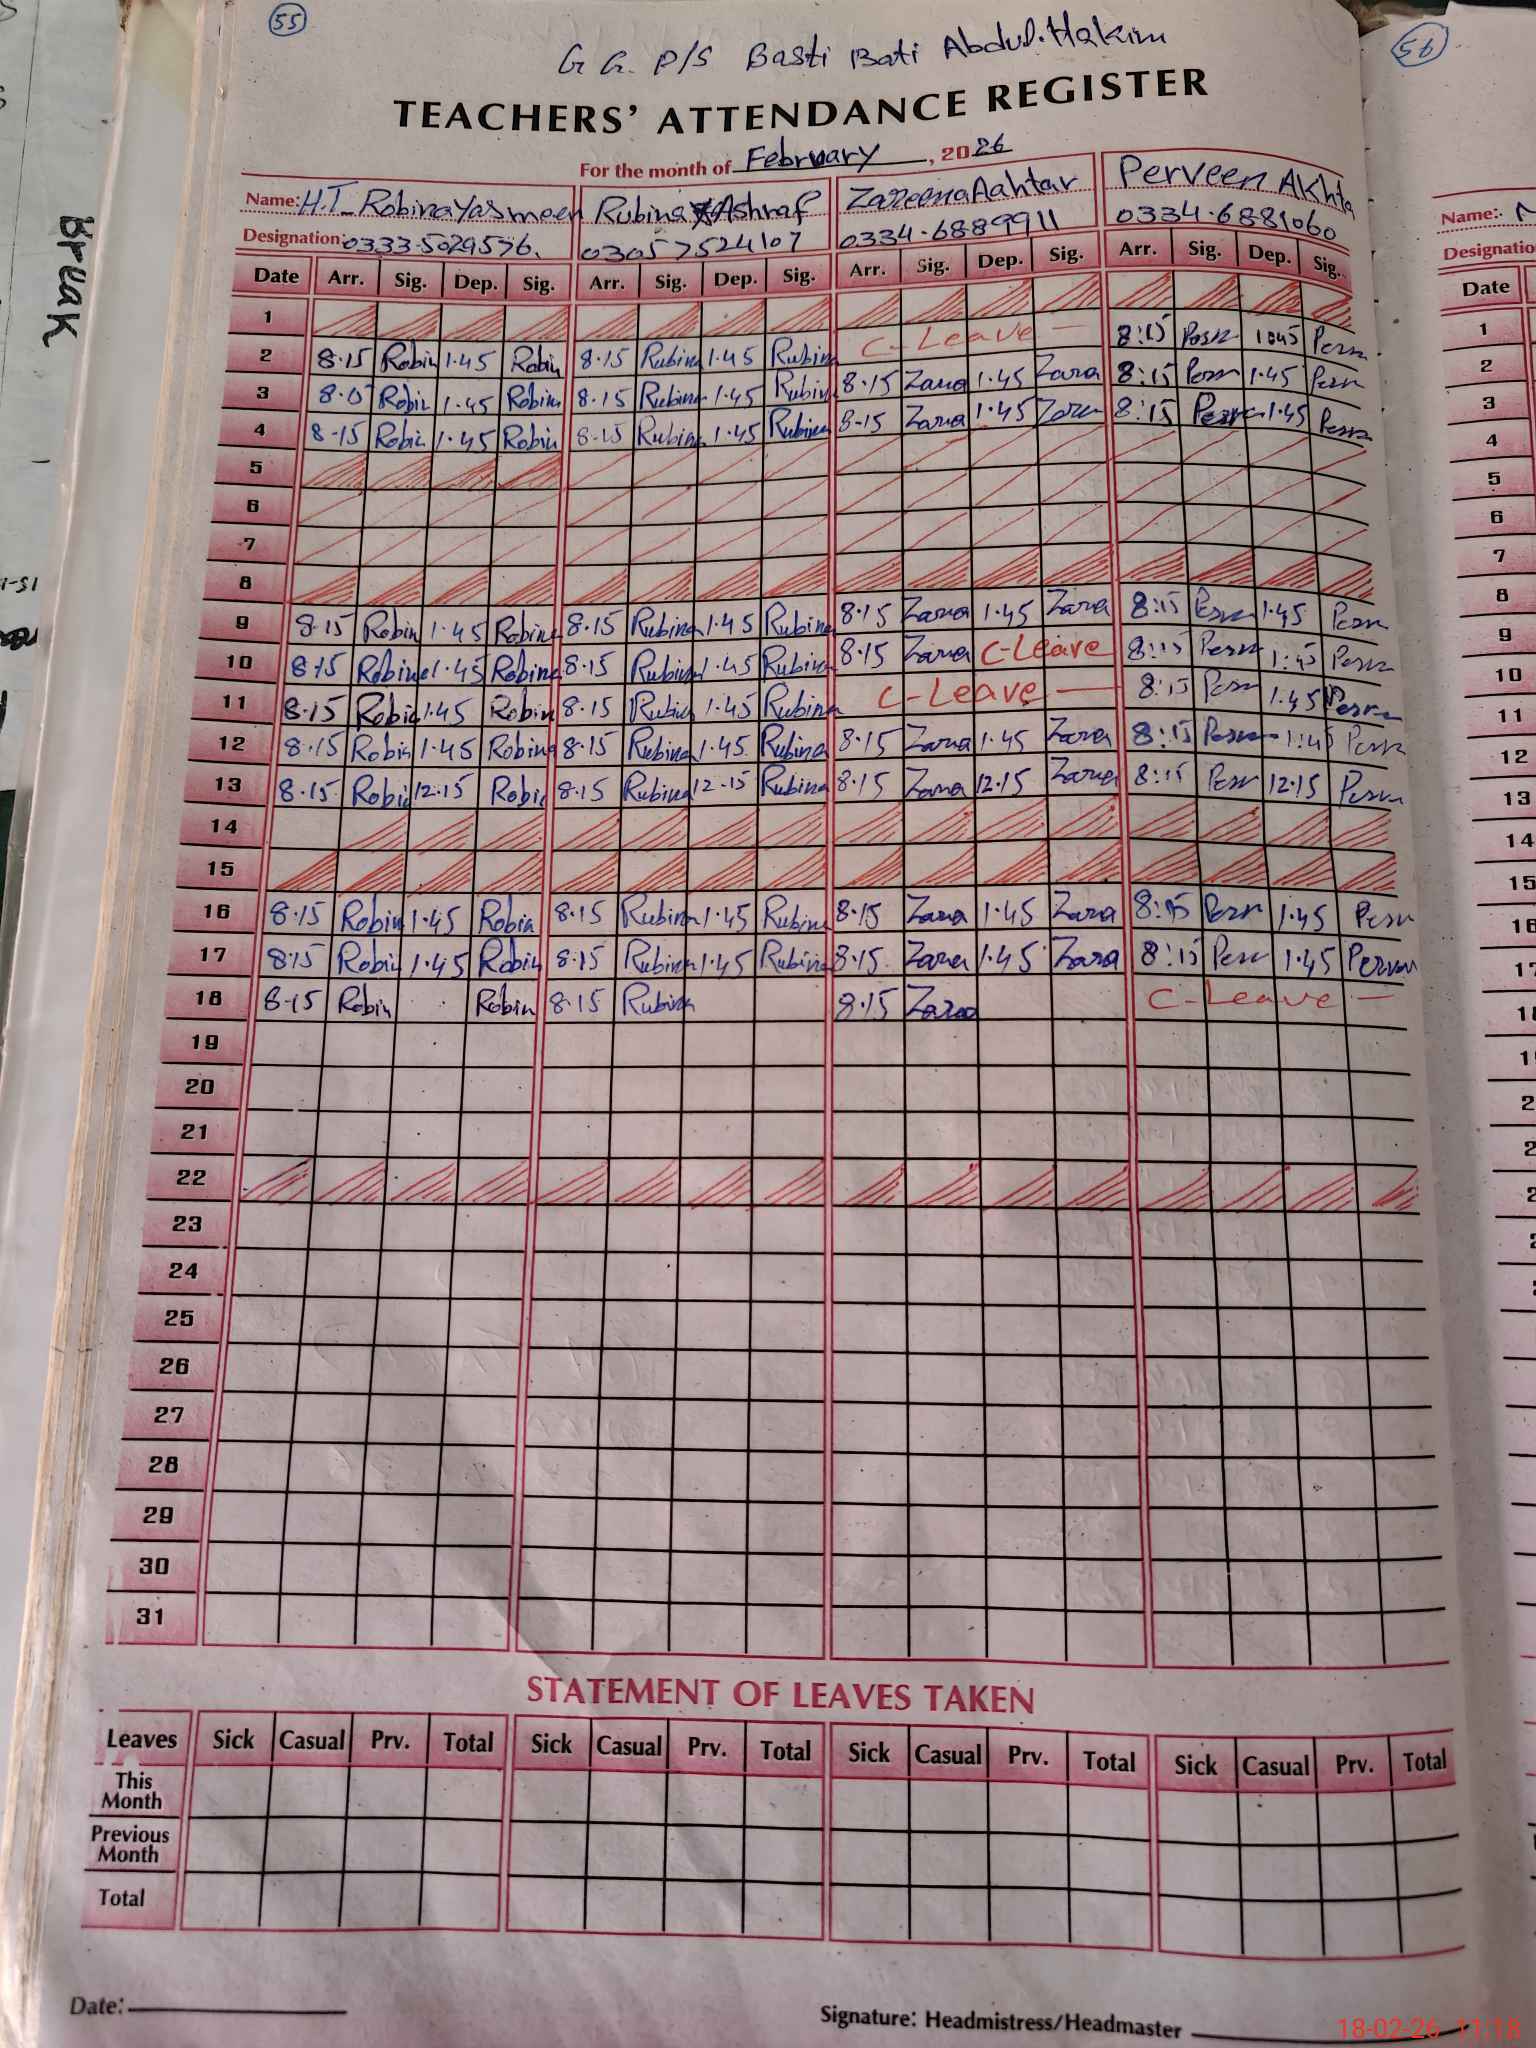 55
56
G G. P/S Basti Bati Abdul.Hakim
TEACHERS' ATTENDANCE REGISTER
For the month of February, 2026
Name: H.T_ Robina Yasmeen Rubina Ashraf Zareena Aahtar Perveen Akhta
Designation: 0333-5029576. 03057524107 0334.6889911 0334.6881060
Date Arr. Sig. Dep. Sig. Arr. Sig. Dep. Sig. Arr. Sig. Dep. Sig. Arr. Sig. Dep. Sig.
1
2 8.15 Robin 1.45 Robin 8.15 Rubina 1.45 Rubina C-Leave 8:15 1045
3 Robin 1.45 Robina 8.15 Rubina 1.45 Rubin 8.15 Zara 1.45 Zara 8:15 1.45
4 8-15 Robin 1.45 Robin 8.15 Rubina 1.45 Rubina 8-15 Zara 1.45 Zara 8:15 1.45
5
6
7
8
9 8.15 Robin 1.45 Robina 8.15 Rubina 1.45 Rubina 8.15 Zara 1.45 Zara 8:15 1.45
10 8.15 Robina 1.45 Robina 8.15 Rubina 1.45 Rubina 8.15 Zara C-Leave 8:15 1:45
11 8.15 Robin 1.45 Robin 8.15 Rubin 1.45 Rubina C-Leave 8:15 1.45
12 8.15 Robin 1.45 Robina 8.15 Rubina 1.45 Rubina 8.15 Zara 1.45 Zara 8:15 1:45
13 8.15 Robin 12.15 Robin 8.15 Rubina 12.15 Rubina 8.15 Zara 12.15 Zara 8:15 12.15
14
15
16 8.15 Robin 1.45 Robin 8.15 Rubina 1.45 Rubina 8.15 Zara 1.45 Zara 8:15 1.45
17 8.15 Robin 1.45 Robin 8.15 Rubina 1.45 Rubina 8.15 Zara 1.45 Zara 8:15 1.45
18 8-15 Robin Robin 8.15 Rubina 8.15 Zara C-Leave
19
20
21
22
23
24
25
26
27
28
29
30
31
STATEMENT OF LEAVES TAKEN
Leaves Sick Casual Prv. Total Sick Casual Prv. Total Sick Casual Prv. Total Sick Casual Prv. Total
This Month
Previous Month
Total
Date:
Signature: Headmistress/Headmaster
18-02-26 11:18
Break
Name:
Designatio
Date
1
2
3
4
5
6
7
8
9
10
11
12
13
14
15
16